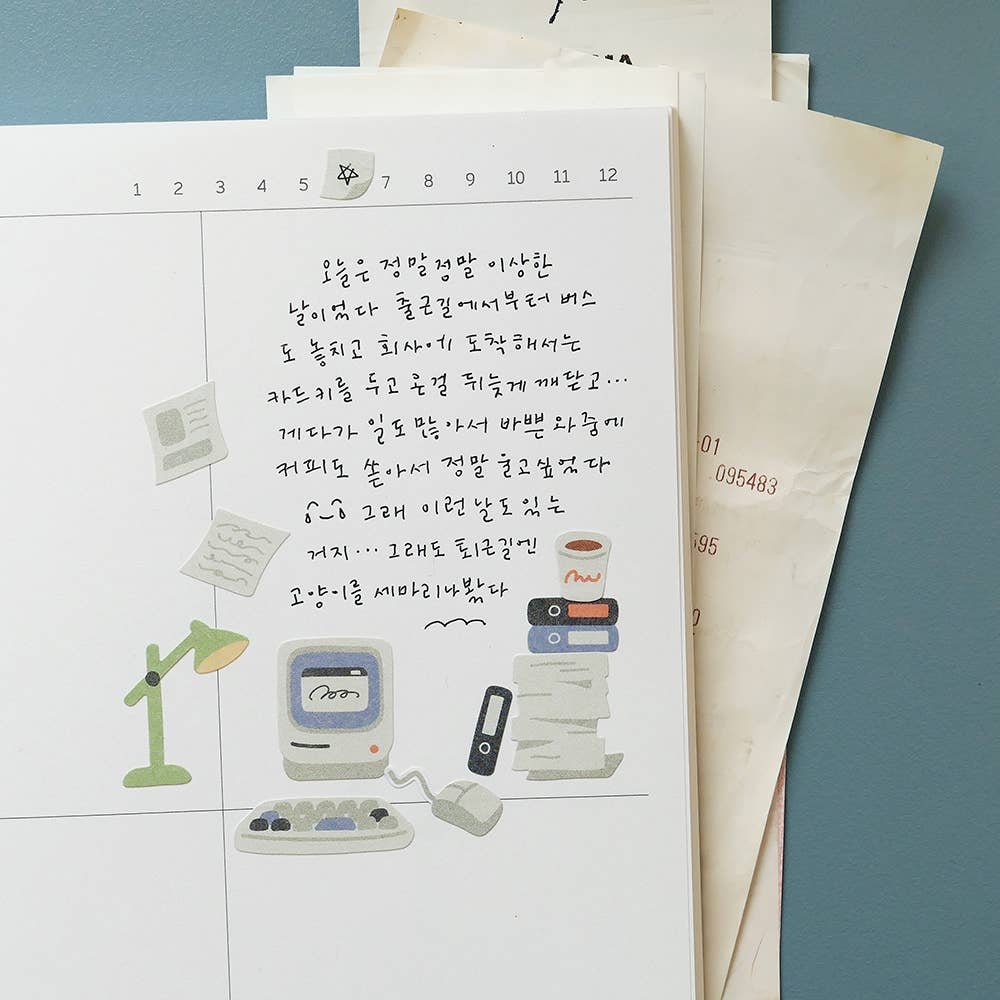 1 2 3 4 5 7 8 9 10 11 12
오늘은 정말정말 이상한
날이었다 출근길에서부터 버스
도 놓치고 회사에 도착해서는
카드키를 두고 온걸 뒤늦게 깨닫고...
게다가 일도 많아서 바쁜 와중에
커피도 쏟아서 정말 울고싶었다
그래 이런날도 있는
거지... 그래도 퇴근길엔
고양이를 세마리나봤다
-01
095483
595